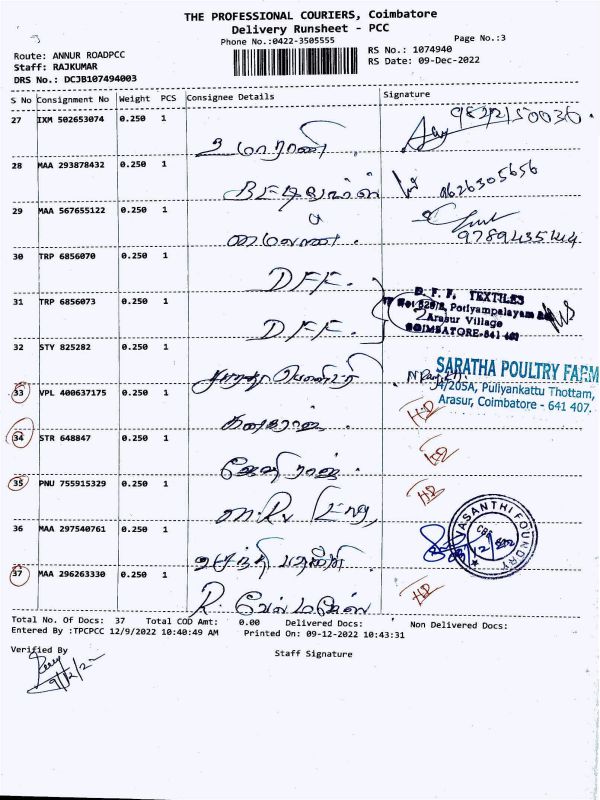 THE PROFESSIONAL COURIERS, Coimbatore
Delivery Runsheet - PCC
Phone No.:0422-3505555
Page No.:3
Route: ANNUR ROADPCC
RS No.: 1074940
Staff: RAJKUMAR
RS Date: 09-Dec-2022
DRS No.: DCJB107494003
S No Consignment No Weight PCS Consignee Details Signature
27 IXM 502653074 0.250 1
28 MAA 293878432 0.250 1
9626305656
29 MAA 567655122 0.250 1
9789435444
30 TRP 6856070 0.250 1 DFF.
31 TRP 6856073 0.250 1 DFF.
D. F. F. TEXTILES
Potiyampalayam
Arasur Village
COIMBATORE-641 407
32 STY 825282 0.250 1
SARATHA POULTRY FARM
4/205A, Puliyankattu Thottam,
Arasur, Coimbatore - 641 407.
33 VPL 400637175 0.250 1 கனகராஜ்.
34 STR 648847 0.250 1
35 PNU 755915329 0.250 1
36 MAA 297540761 0.250 1
VASANTHI FOUNDRY
CBE
37 MAA 296263330 0.250 1
Total No. Of Docs: 37 Total COD Amt: 0.00 Delivered Docs: Non Delivered Docs:
Entered By :TPCPCC 12/9/2022 10:40:49 AM Printed On: 09-12-2022 10:43:31
Verified By
Staff Signature
9/12/22